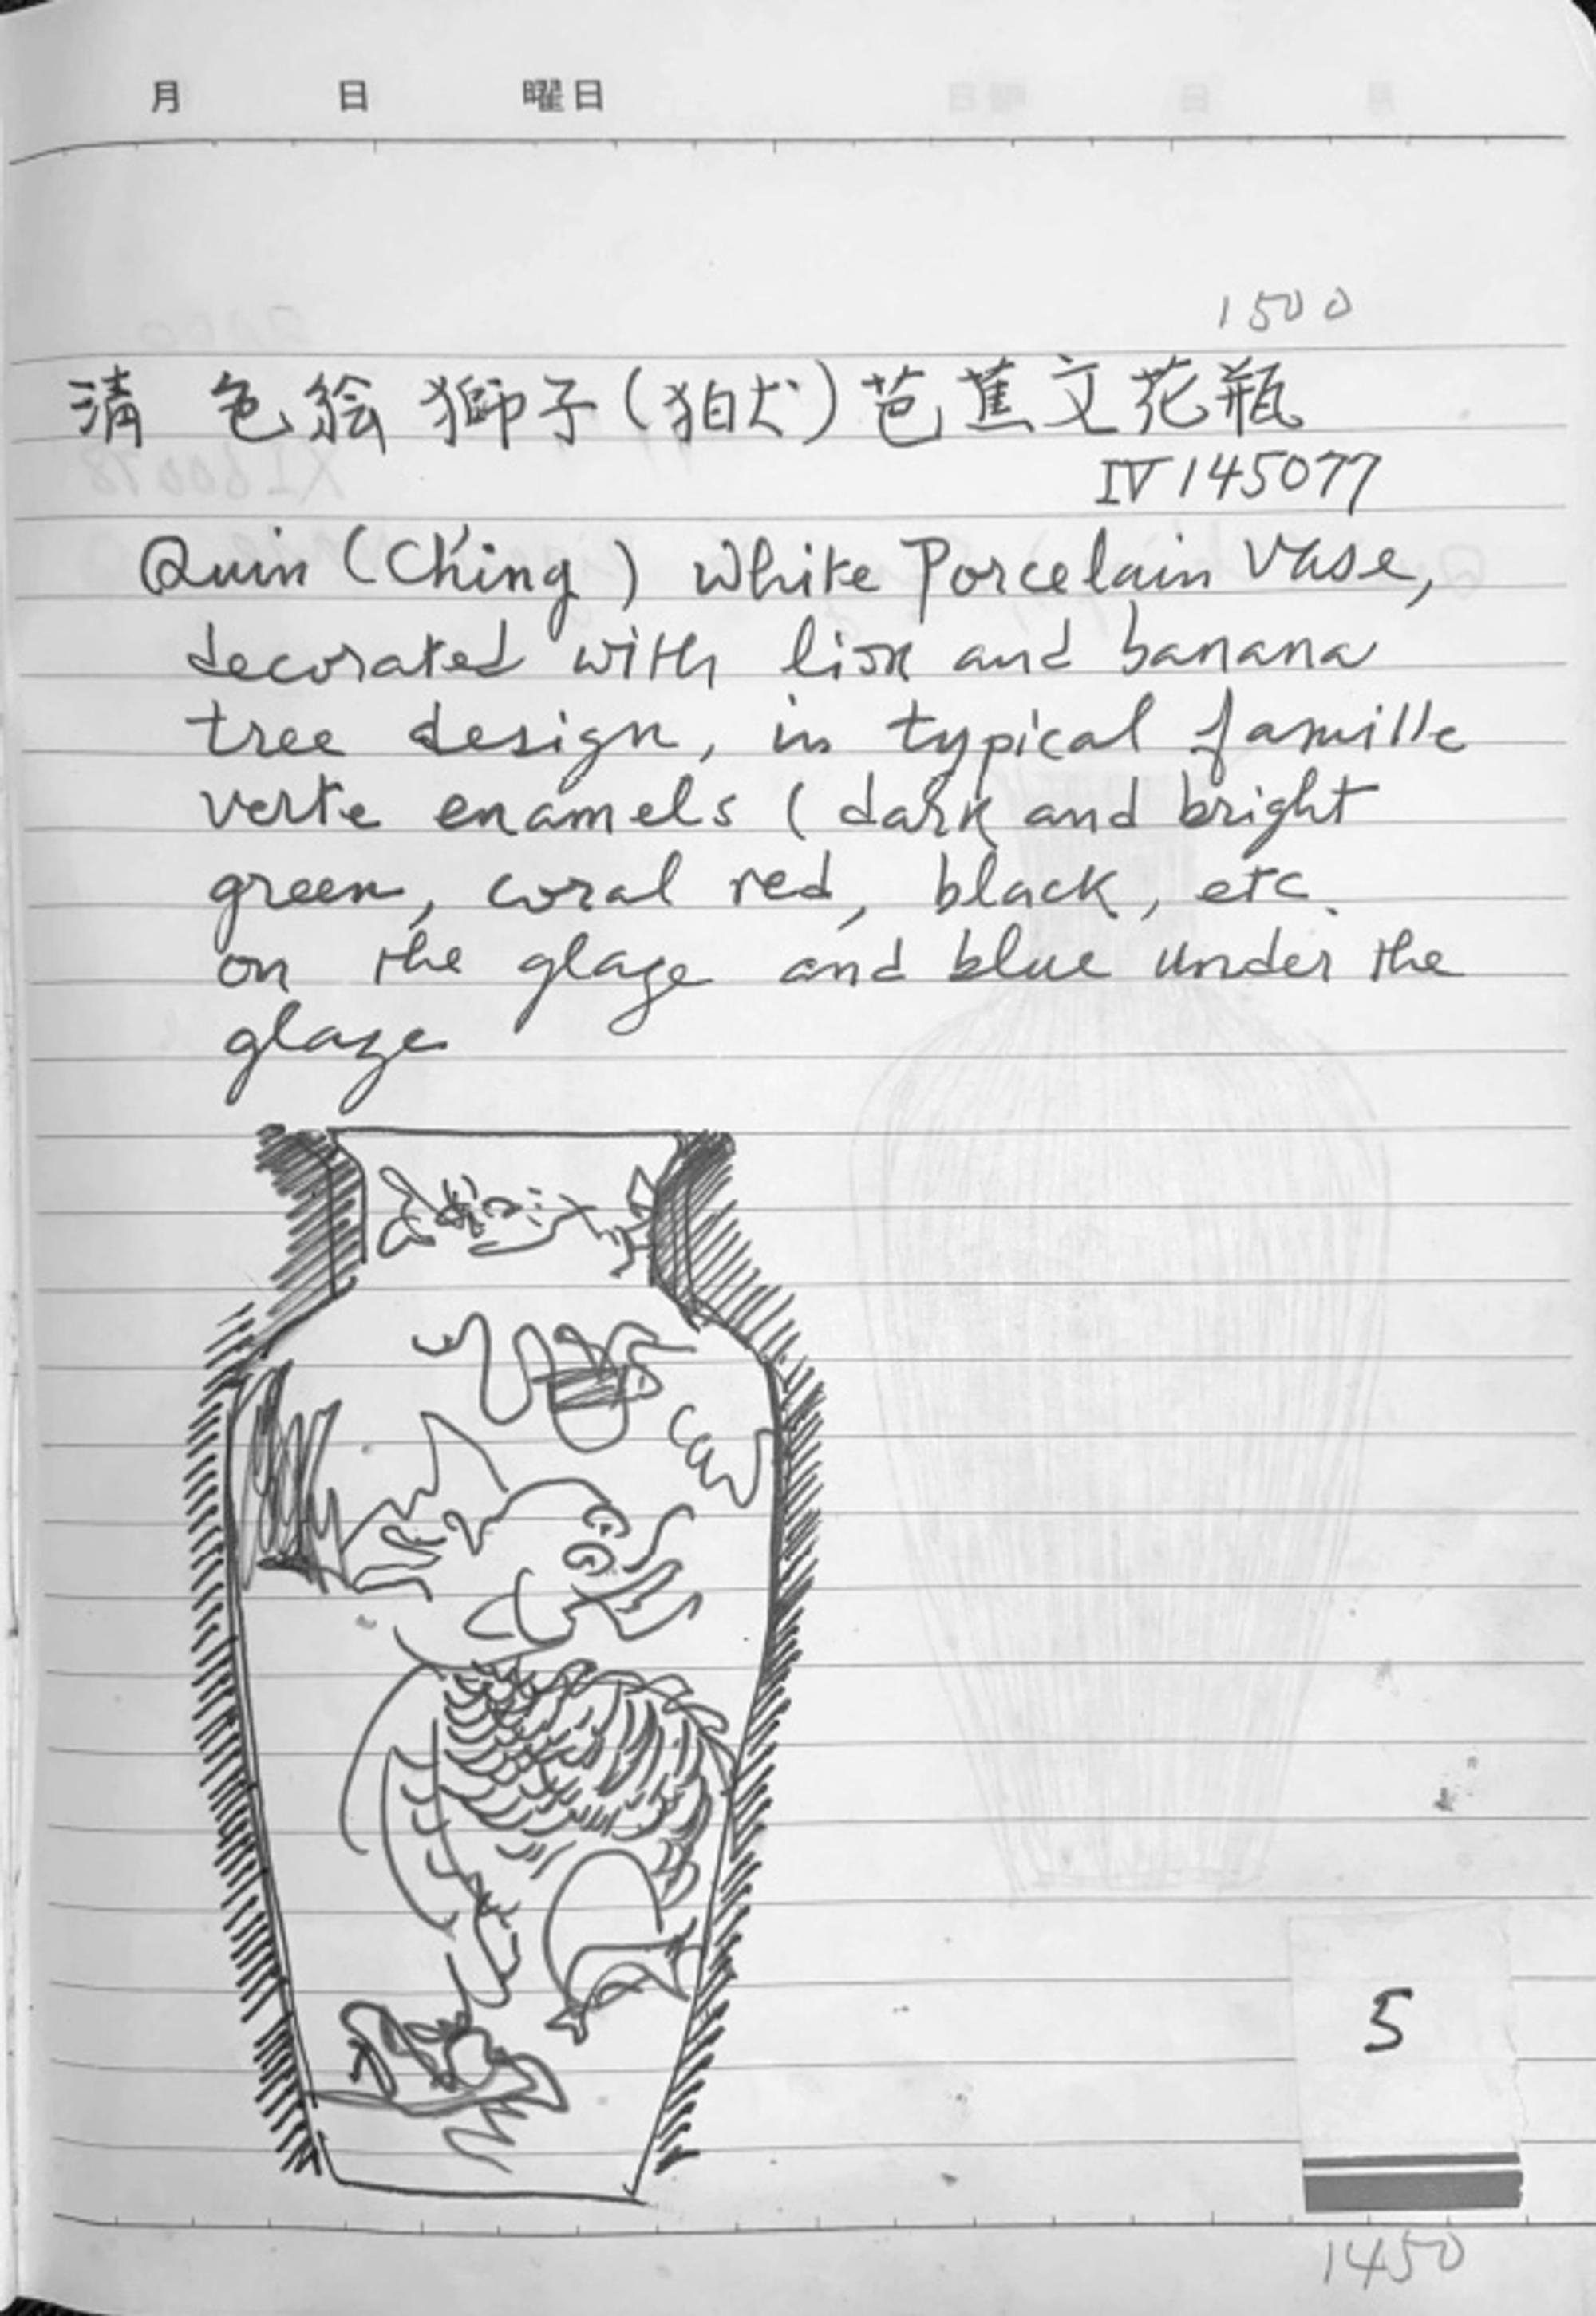 月 日 曜日
1500
清 色絵 獅子(狛犬)芭蕉文花瓶
IV 145077
Quin (Ch'ing) White Porcelain Vase,
decorated with lion and banana
tree design, in typical famille
verte enamels (dark and bright
green, coral red, black, etc.
on the glaze and blue under the
glaze
5
1450